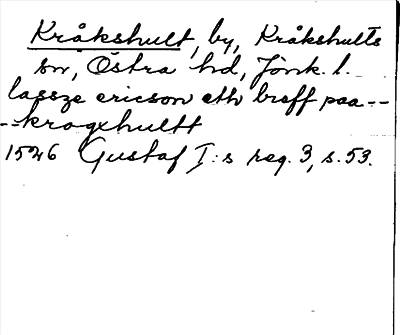 Kråkshult, by, Kråkshults
sn, Östra hd, Jönk. l.
lassze ericson eth breff paa --
-- krogxhultt
1526 Gustaf I:s reg. 3, s. 53.